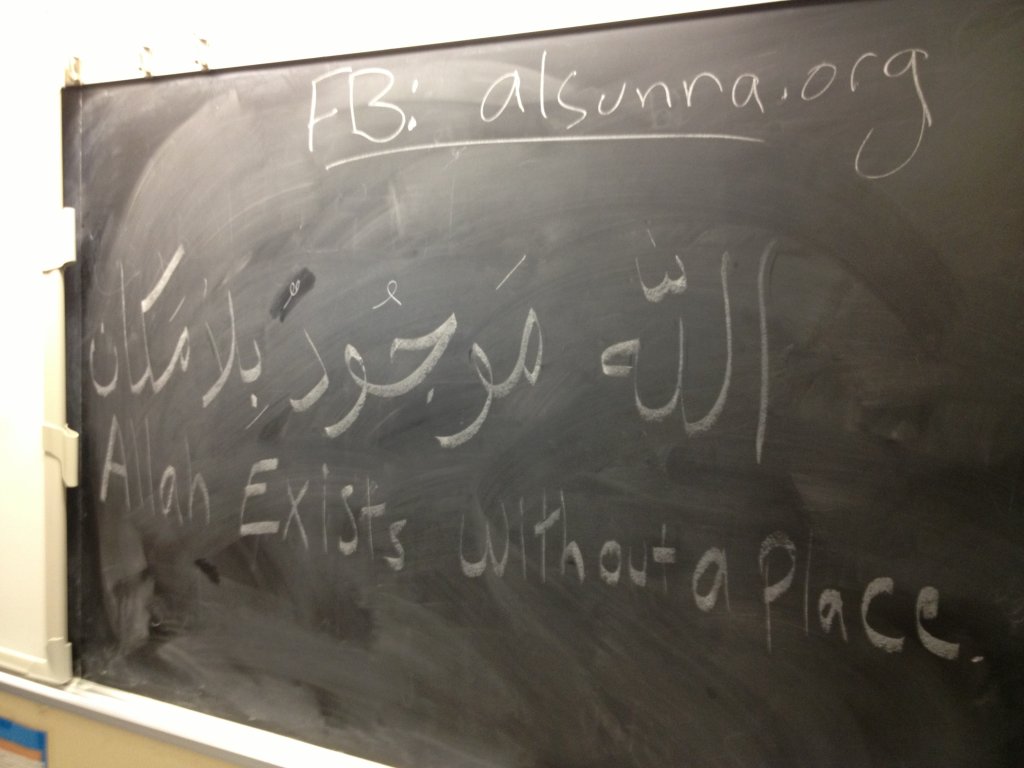 FB: alsunna.org
اللّه مَوجُودٌ بِلا مَكان
Allah Exists without a place.